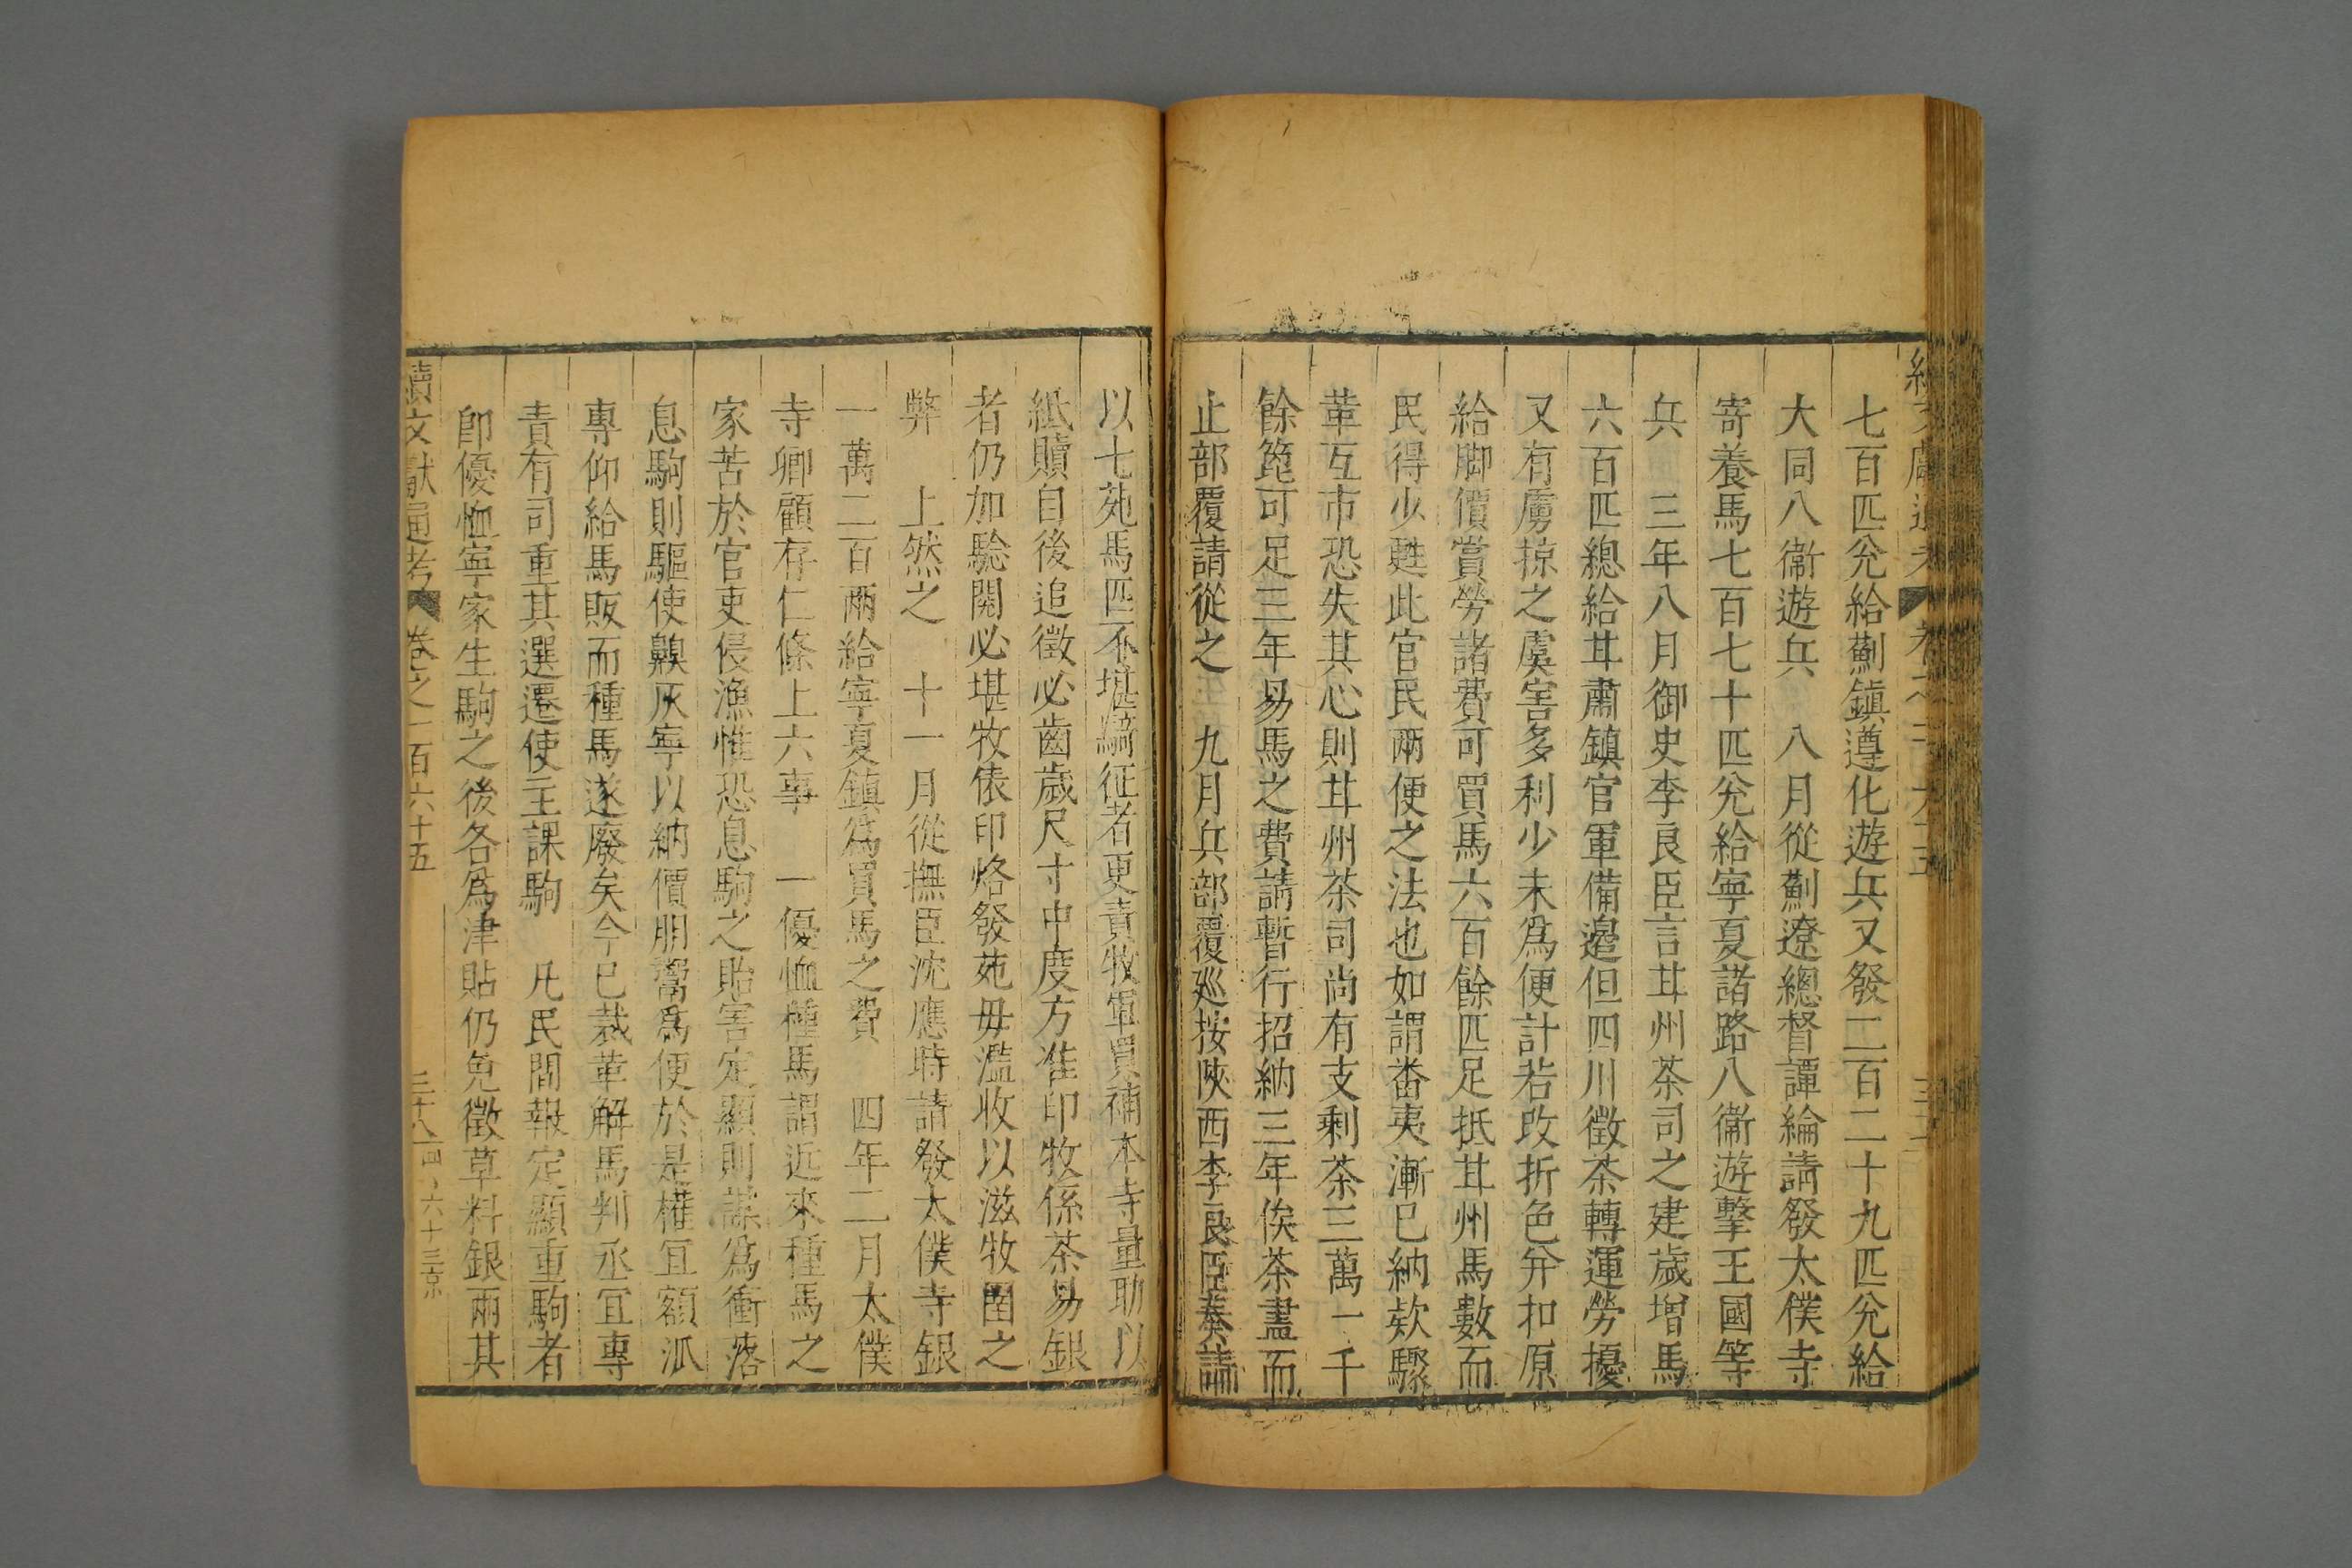 七百匹兊給薊鎮遵化遊兵又發二百二十九匹兊給
大同八衞遊兵　八月從薊遼總督譚綸請發太僕寺
寄養馬七百七十匹兊給寧夏諸路八衞遊擊王國等
兵　三年八月御史李良臣言甘州茶司之建歲增馬
六百匹總給甘肅鎮官軍備邉但四川徵茶轉運勞擾
又有虜掠之虞害多利少未爲便計若改折色并扣原
給脚價賞勞諸費可買馬六百餘匹足抵甘州馬數而
民得少甦此官民兩便之法也如謂畨夷漸已納欵驟
革互市恐失其心則甘州茶司尚有支剩茶三萬一千
餘箆可足三年易馬之費請暫行招納三年俟茶盡而
止部覆請從之　九月兵部覆廵按陜西李良臣奏請
以七苑馬匹不堪騎征者更責牧軍買補本寺量助以
紙贖自後追徵必齒歲尺寸中度方准印牧係茶易銀
者仍加騐閱必堪牧俵印烙發苑毋濫收以滋牧圉之
弊　上然之　十一月從撫臣沈應時請發太僕寺銀
一萬二百兩給寧夏鎮爲買馬之費　四年二月太僕
寺卿顧存仁條上六事　一優恤種馬謂近來種馬之
家苦於官吏侵漁惟恐息駒之貽害定顯則謀爲衝落
息駒則驅使𩦸灰寧以納價朋鬻爲便於是權宜額派
專仰給馬販而種馬遂廢矣今已裁革解馬判丞宜專
責有司重其選遷使主課駒　凡民間報定顯重駒者
卽優恤寧家生駒之後各爲津貼仍免徵草料銀兩其
續文獻通考　卷之一百六十五　三十八　六十三京